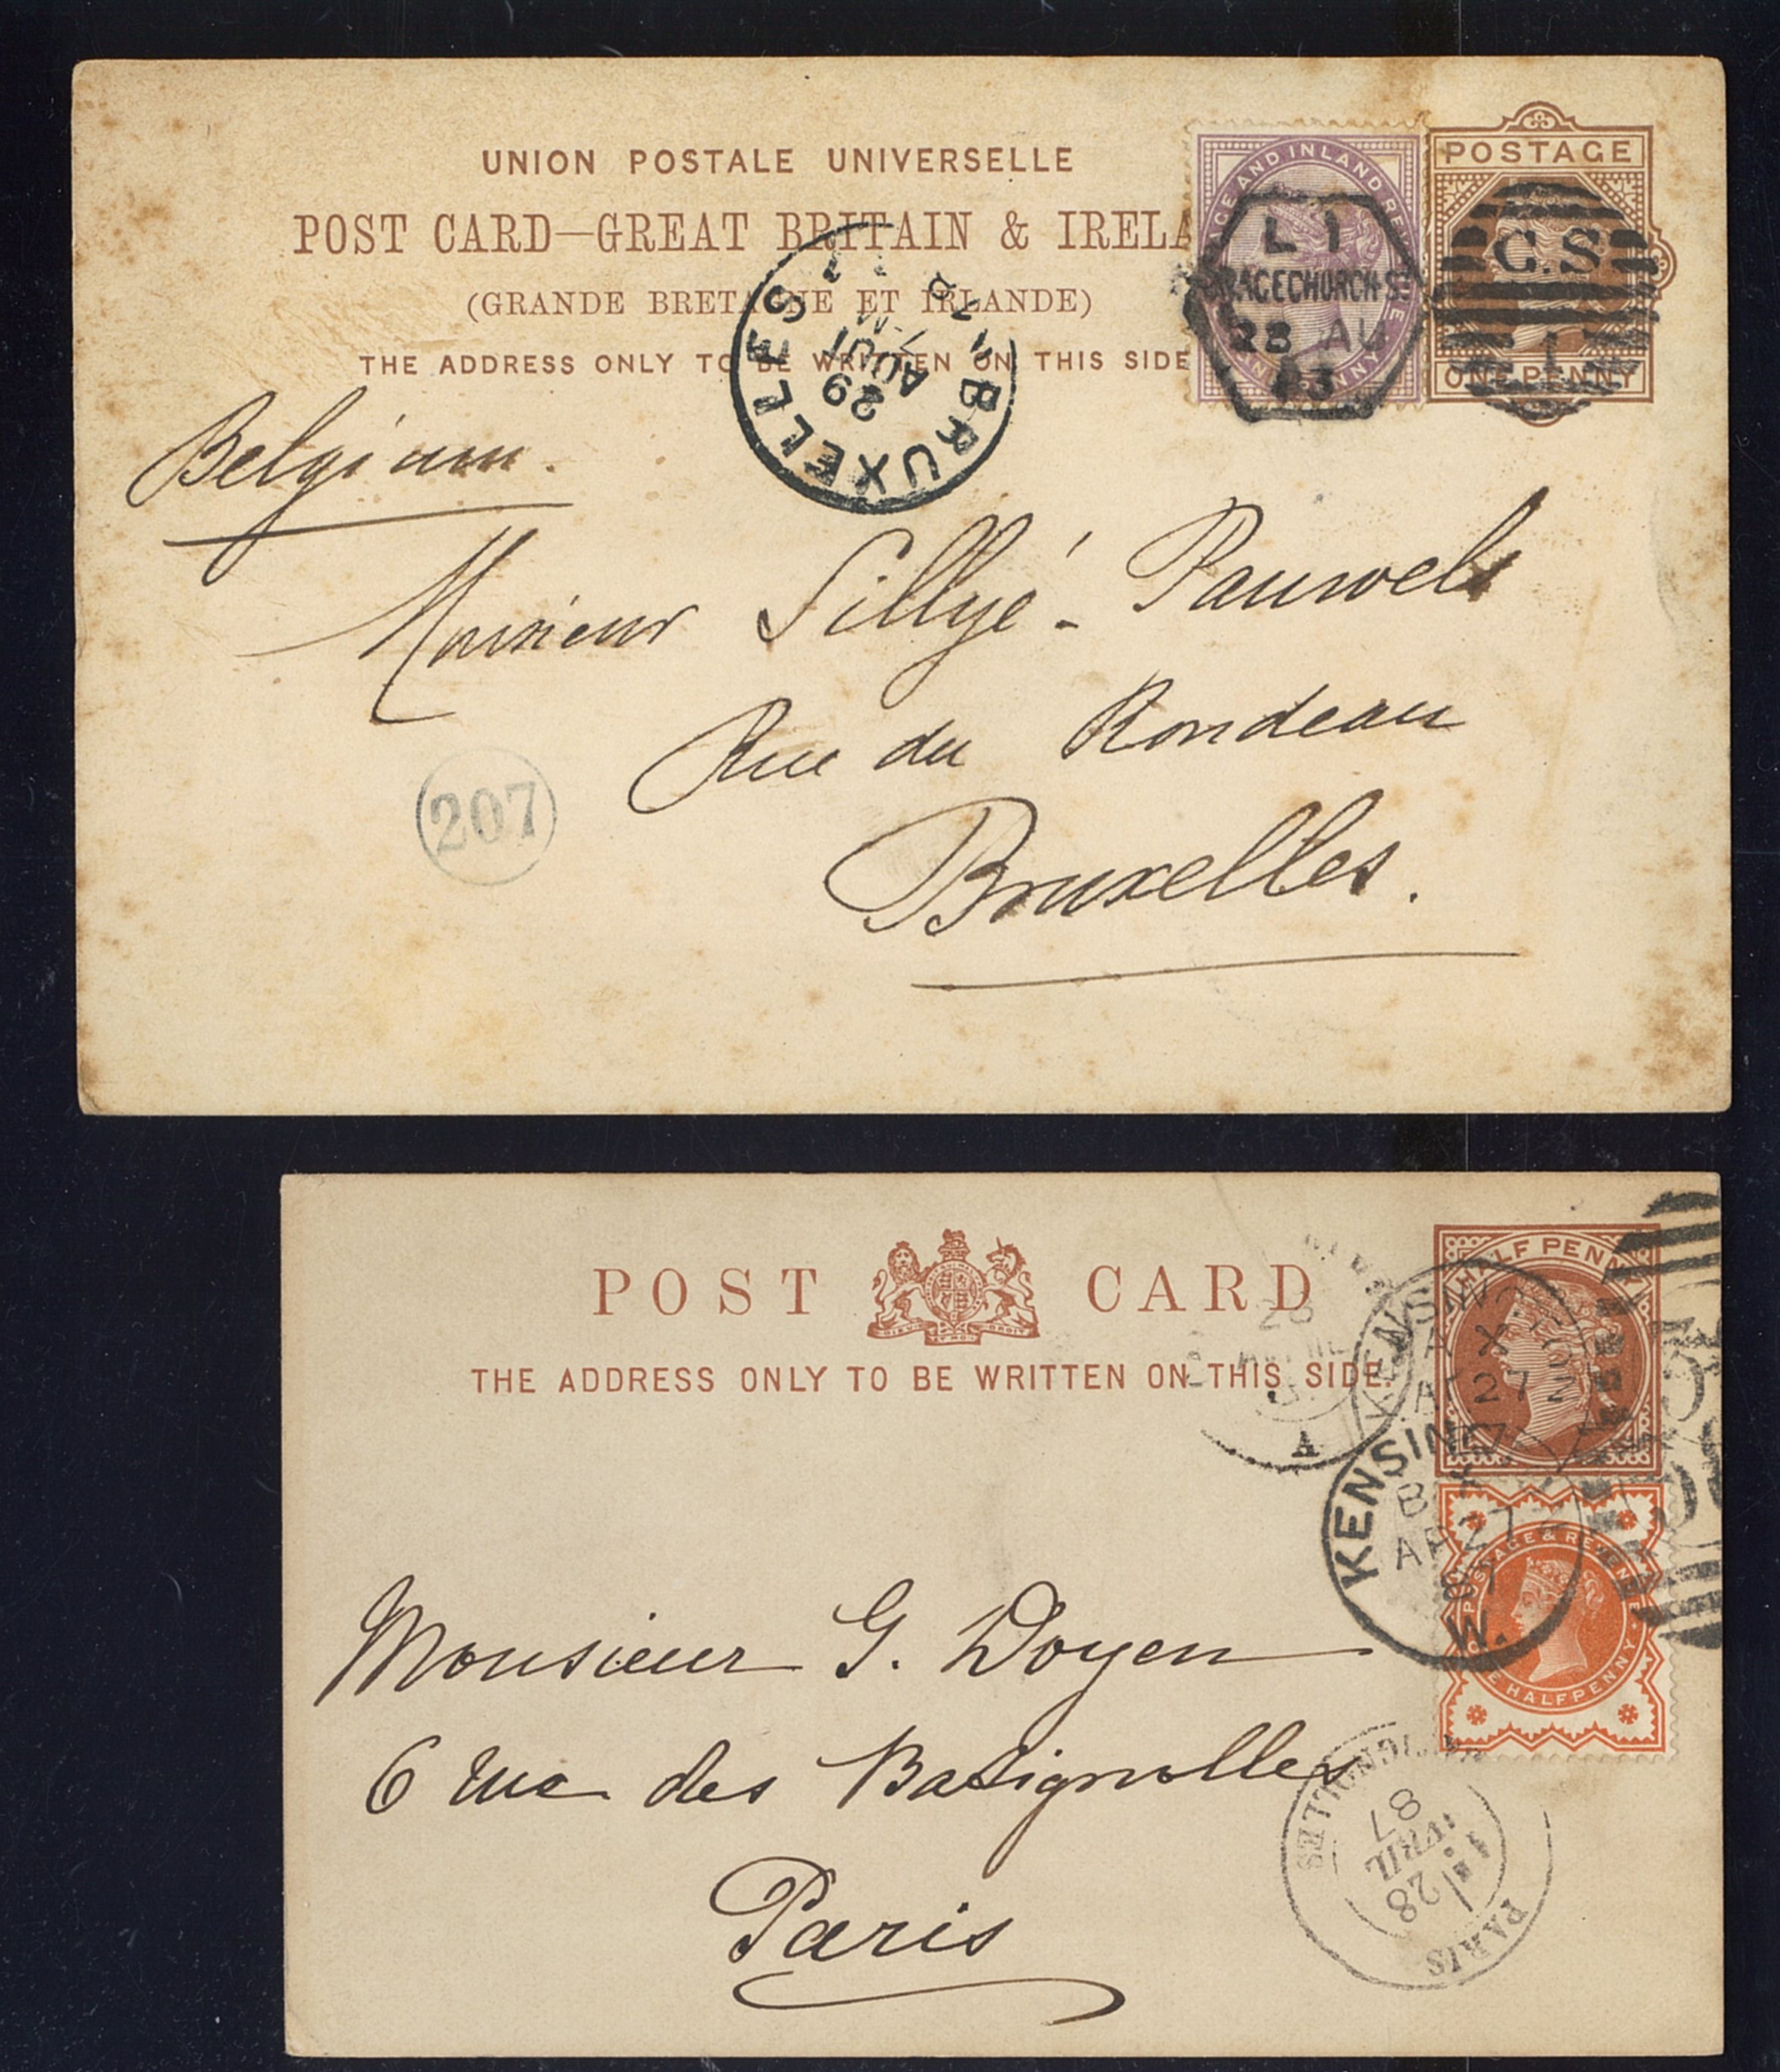 UNION POSTALE UNIVERSELLE
POST CARD—GREAT BRITAIN & IRELA
(GRANDE BRETAGNE ET IRLANDE)
THE ADDRESS ONLY TO BE WRITTEN ON THIS SIDE
CE AND INLAND RE
POSTAGE
ONE PENNY
L 1
RACECHURCH S
28 AU
83
C.S
1
BRUXELLES
29
AOUT
Belgium.
Monsieur Sillyé-Pauwels
Rue du Rondeau
Bruxelles.
207
POST CARD
THE ADDRESS ONLY TO BE WRITTEN ON THIS SIDE.
HALF PENNY
KENSING
A X
AP 27
28
A
KENSING
B X
AP 27
87
W.
POSTAGE & REVENUE
HALFPENNY
Monsieur G. Doyen
6 rue des Batignolles
Paris
PARIS
28
AVRIL
87